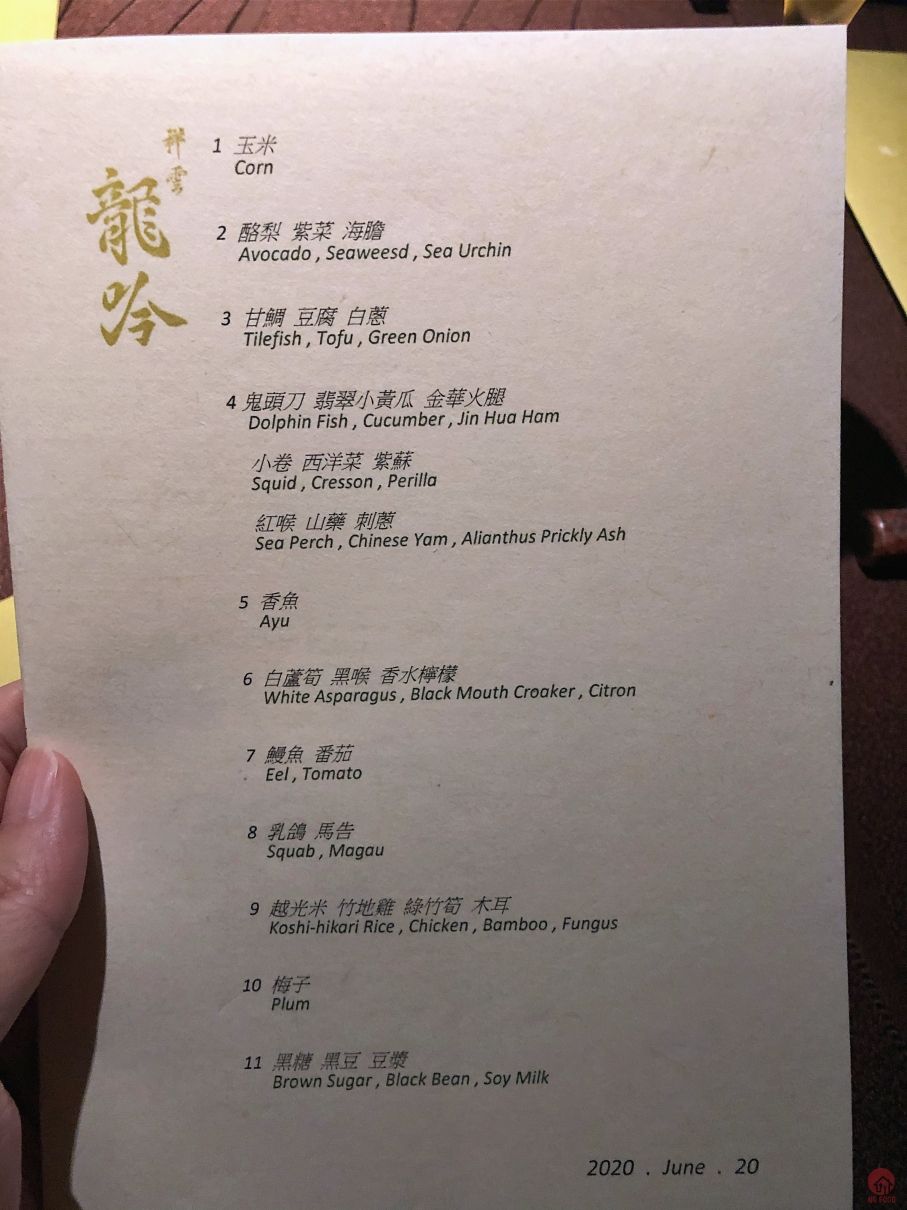 祥雲
龍吟
1 玉米
Corn
2 酪梨 紫菜 海膽
Avocado , Seaweesd , Sea Urchin
3 甘鯛 豆腐 白蔥
Tilefish , Tofu , Green Onion
4 鬼頭刀 翡翠小黃瓜 金華火腿
Dolphin Fish , Cucumber , Jin Hua Ham
小卷 西洋菜 紫蘇
Squid , Cresson , Perilla
紅喉 山藥 刺蔥
Sea Perch , Chinese Yam , Alianthus Prickly Ash
5 香魚
Ayu
6 白蘆筍 黑喉 香水檸檬
White Asparagus , Black Mouth Croaker , Citron
7 鰻魚 番茄
Eel , Tomato
8 乳鴿 馬告
Squab , Magau
9 越光米 竹地雞 綠竹筍 木耳
Koshi-hikari Rice , Chicken , Bamboo , Fungus
10 梅子
Plum
11 黑糖 黑豆 豆漿
Brown Sugar , Black Bean , Soy Milk
2020 . June . 20